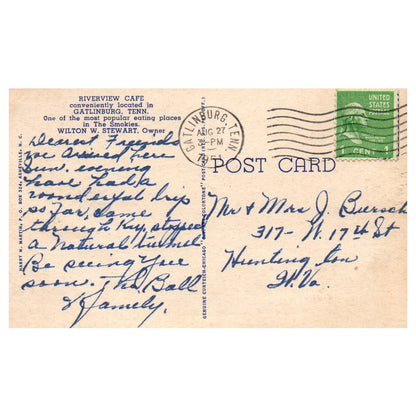 RIVERVIEW CAFE
conveniently located in
GATLINBURG, TENN.
One of the most popular eating places
in The Smokies.
WILTON W. STEWART, Owner
Dearest Friends
we arrived here
Sun. evening
have had a
wonderful trip
so far, came
through Ky, stopped
a Natural tunnel
Be seeing you
soon. The Ball
& family.
HARRY M. MARTIN, P.O. BOX 324, ASHEVILLE, N. C.
GENUINE CURTEICH-CHICAGO
GATLINBURG, TENN.
AUG 27
PM
UNITED STATES
1 CENT 1
POST CARD
Mr & Mrs J.
317- W. 17th St
Huntington
W. Va.